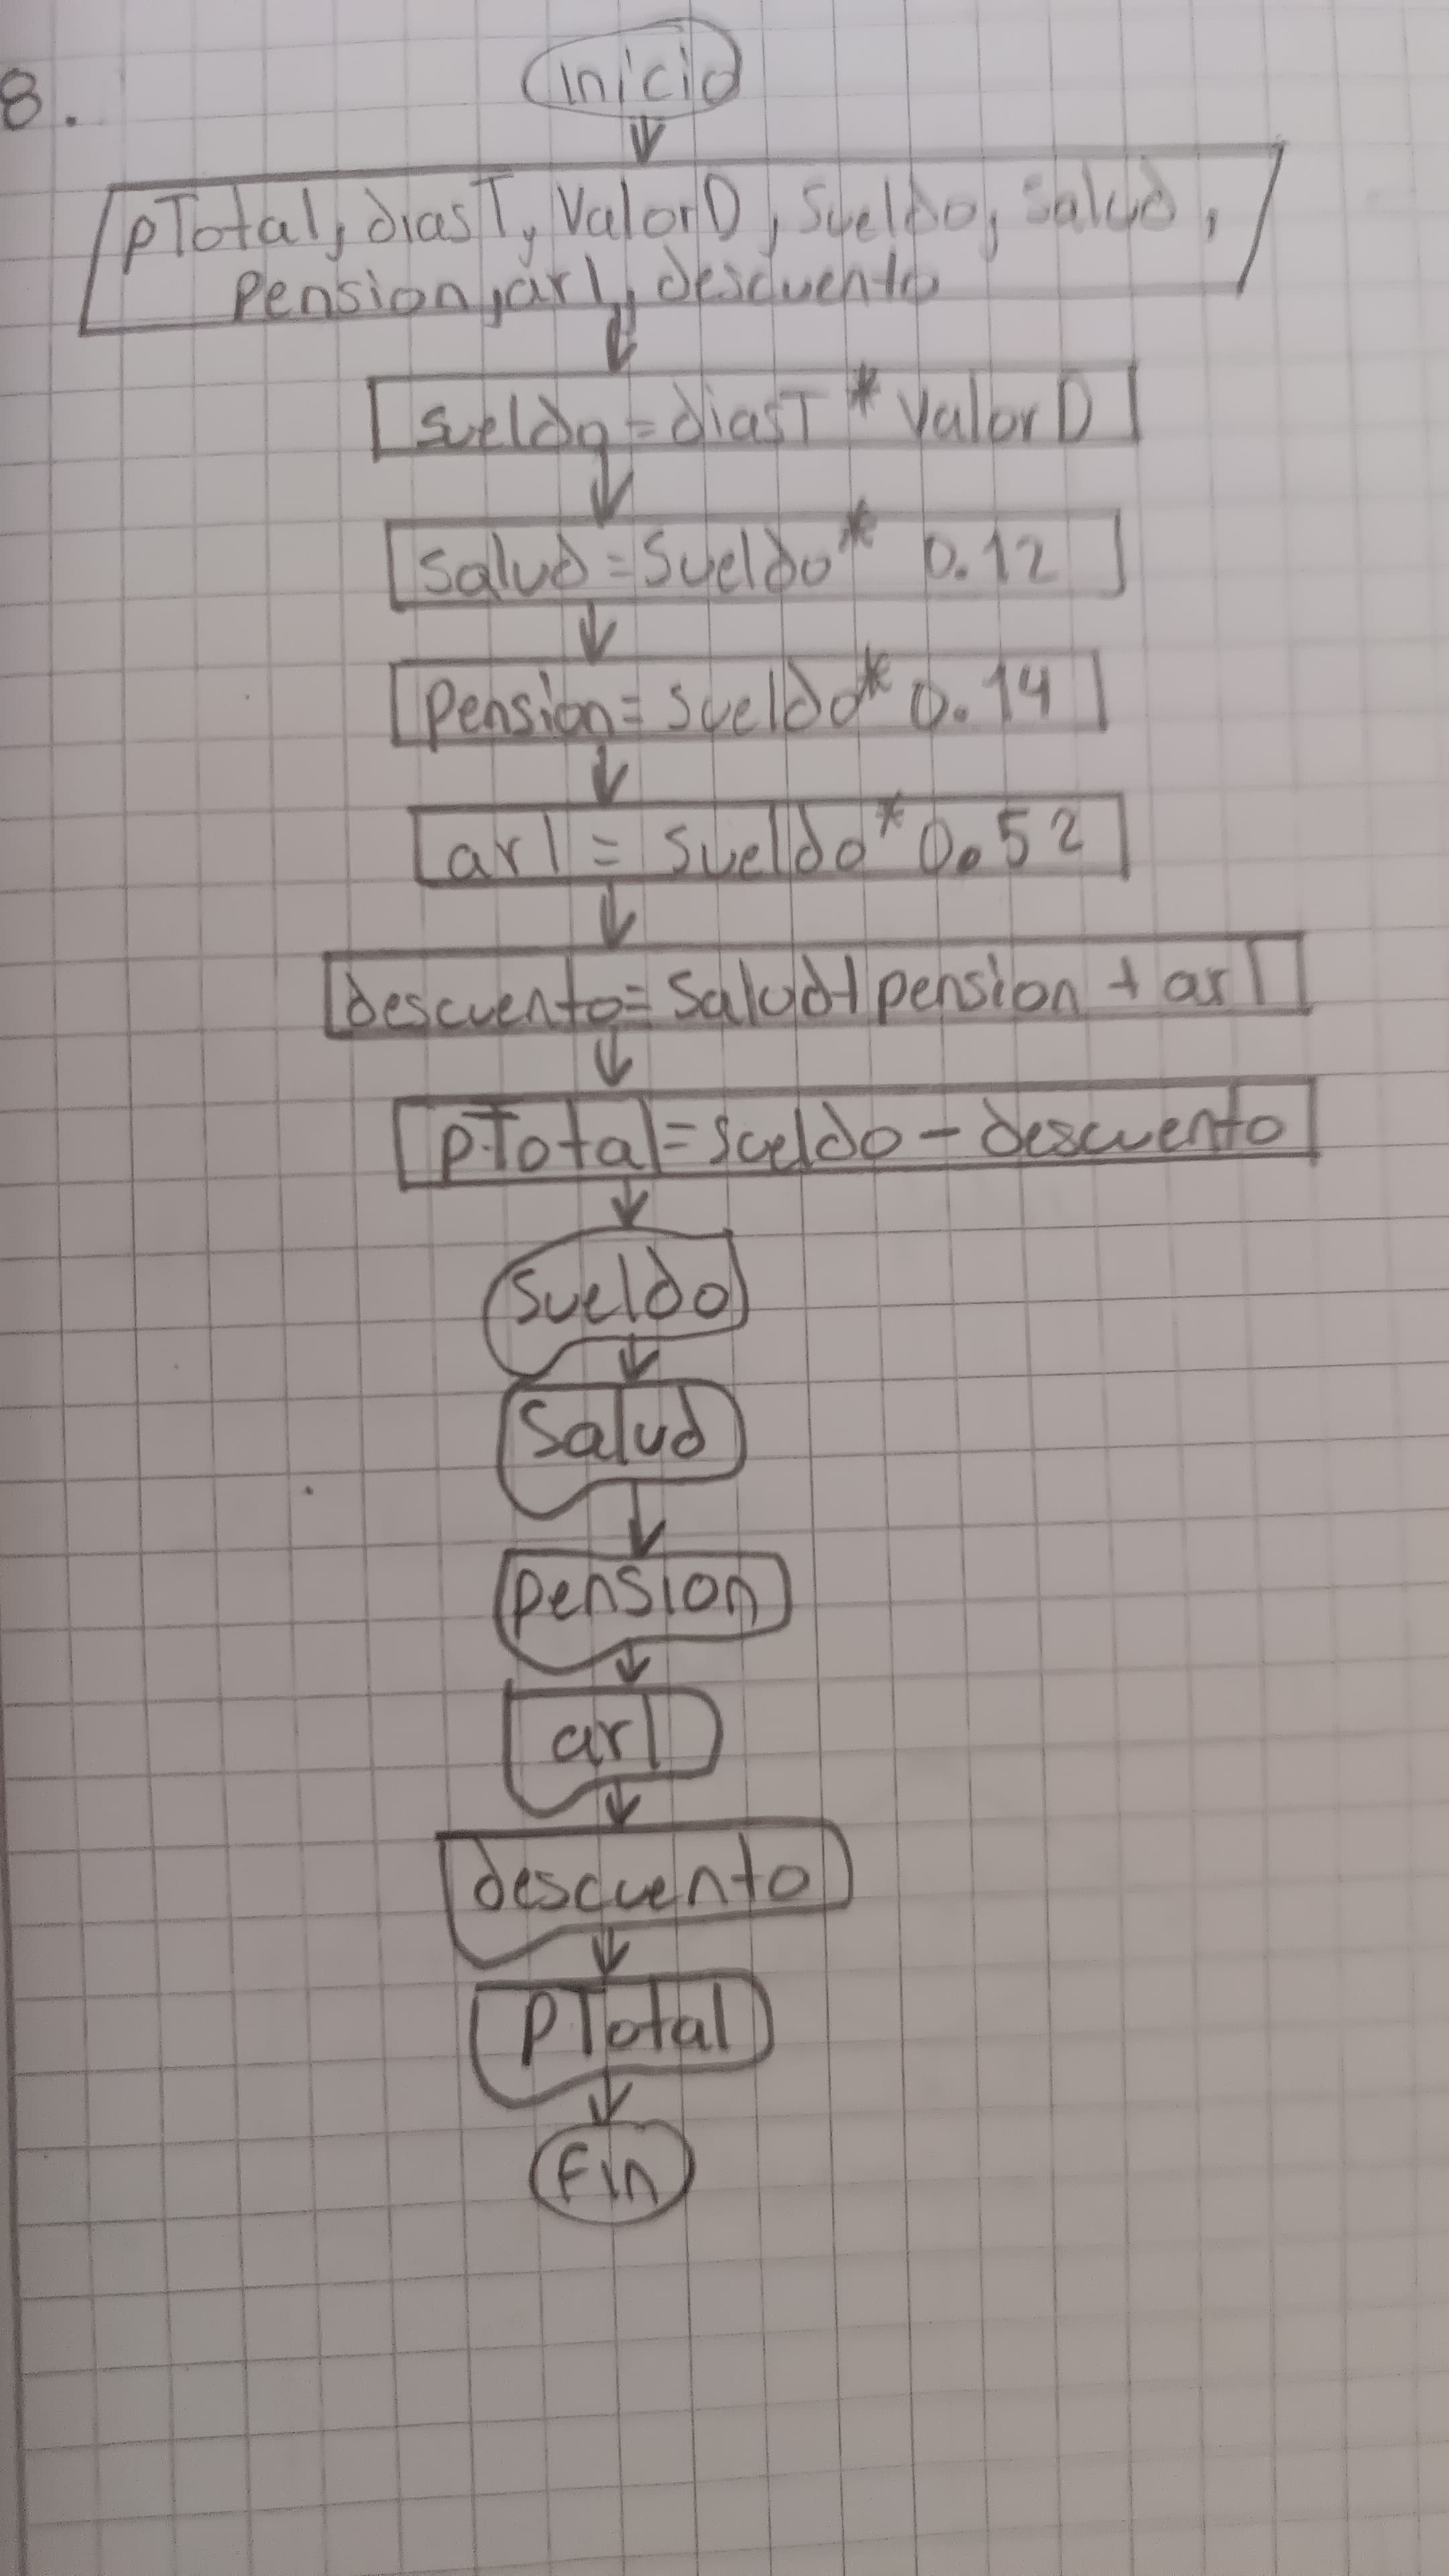 8.
inicio
pTotal, diasT, ValorD, Sueldo, Salud,
pension, arl, descuento
sueldo = diasT * ValorD
Salud = Sueldo * 0.12
Pension = sueldo * 0.14
arl = sueldo * 0.52
descuento = Salud + pension + arl
pTotal = sueldo - descuento
Sueldo
Salud
pension
arl
descuento
pTotal
Fin